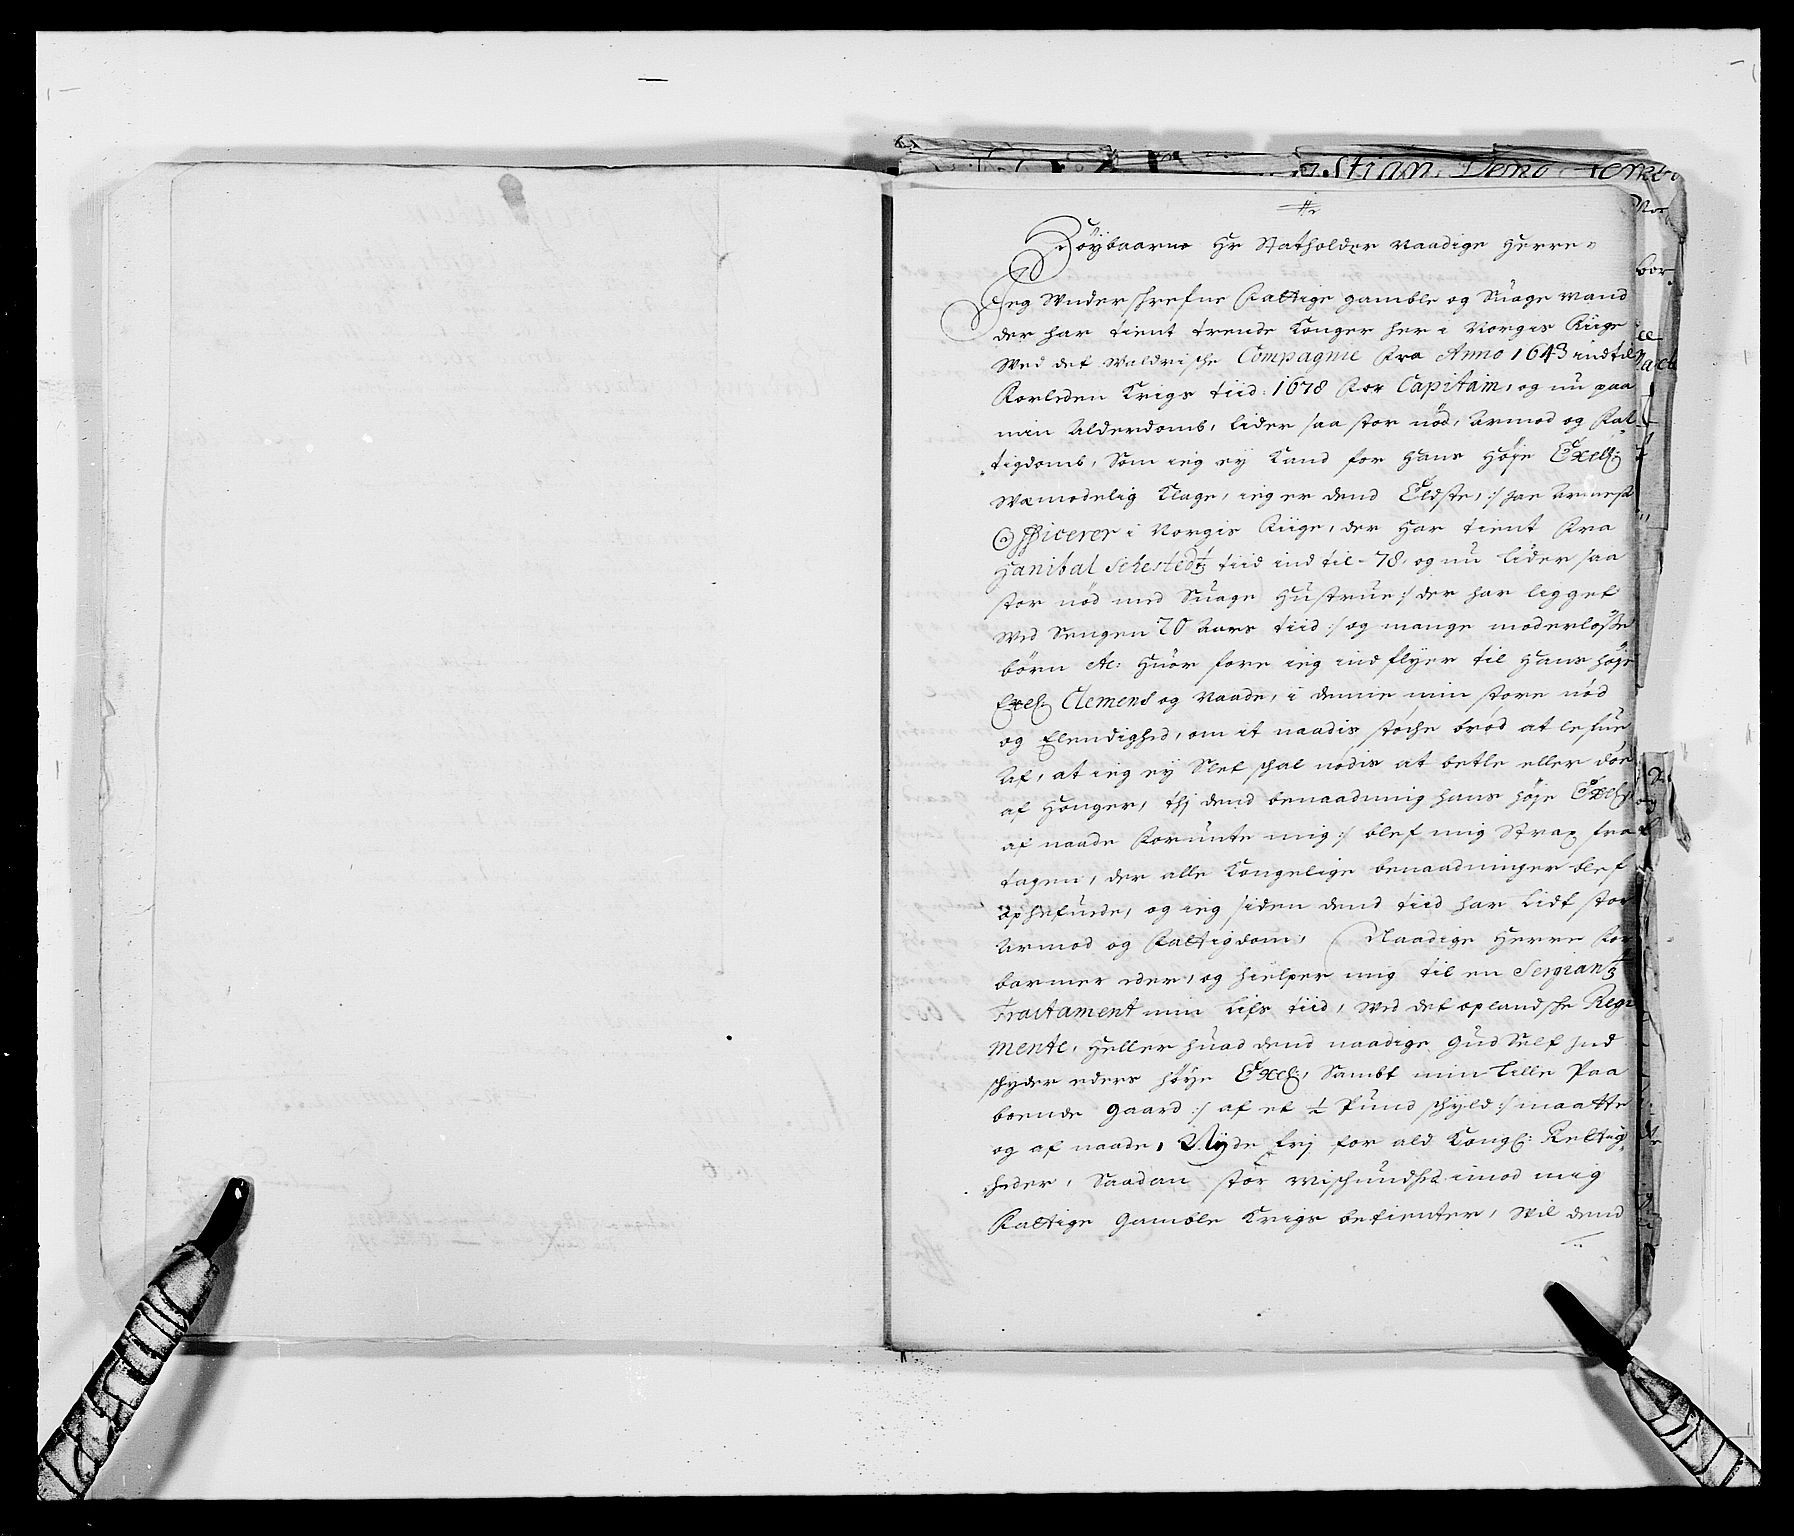 stian Deno
Höÿbaarne Hr Statholder Naadige Herre
Jeg Vnderschrefne Fattige gamble og Suage Mand
der har tient trende Konger her i Norgis Riige
Wed det Waldrische Compagnie Fra Anno 1643 indtil
Forleden Krigs tiid: 1678 For Capitain, og nu paa
min Alderdomb, Lider saa stor nöd, Armod og Fat
tigdomb, Som ieg eÿ Kand for Hans Höje Excell:
Wemodelig Klage, ieg er dend Eldste, :/ jae Armest
Officerer i Norgis Riige, der Har tient Fra
Hanibal Sehestedtz tiid ind til -78, og nu Lider saa
stor nöd med Suage Hustrue :/ der har ligget
Wed Sengen 20 Aars tiid :/ og mange moderlösse
börn etc: Huor fore ieg indflÿer til Hans höje
Excel: Clement og Naade, i denne min store nöd
og Elendighed, om it naadis støche bröd at lefue
Af, at ieg eÿ Slet schal nødis at betle eller döe
af Honger, thj dend benaadning hans höje Excel:
af naade Forunte mig :/ blef mig Strax fra
tagen, der alle Kongelige benaadninger blef
ophefuede, og ieg siden dend tiid har Lidt stor
Armod og Fattigdom, Naadige Herre For
barmer eder, og hielper mig til en Sergiantz
Tractament min Lifs tiid, Wed det oplandsche Regi
mente, Heller huad dend naadige Gud Self Ind
schÿder eders höÿe Excel:, Sambt min Lille Paa
boende gaard :/ af et ½ Pund schÿld :/ maatte
og af naade, Nÿde frj for ald Kongl: Rettig
heder, Saadan stor Mischundhed imod mig
Fattige Gamble Krigs betienter, Wil dend